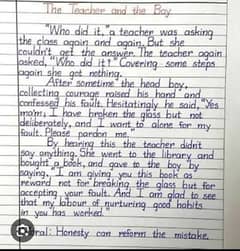 The Teacher and the Boy
"Who did it," a teacher was asking
the class again and again. But she
couldn't get the answer. The teacher again
asked, "Who did it!" Covering some steps
again she got nothing.
After sometime the head boy,
collecting courage raised his hand and
confessed his fault. Hesitatingly he said, "Yes
mam, I have broken the glass but not
deliberately, and I want to alone for my
fault. Please pardon me."
By hearing this the teacher didn't
say anything. She went to the library and
bought a book, and gave to the boy by
saying, "I am giving you this book as
reward not for breaking the glass but for
accepting your fault. And I am glad to see
that my labour of nurturing good habits
in you has worked."
Honesty can reform the mistake.